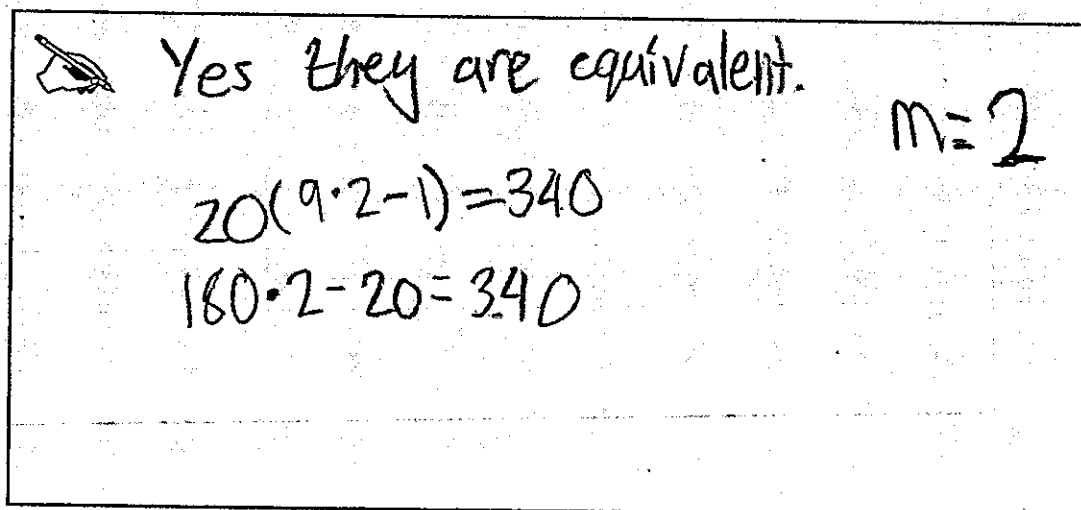 Yes they are equivalent.
m=2
20(9·2-1)=340
180·2-20=340